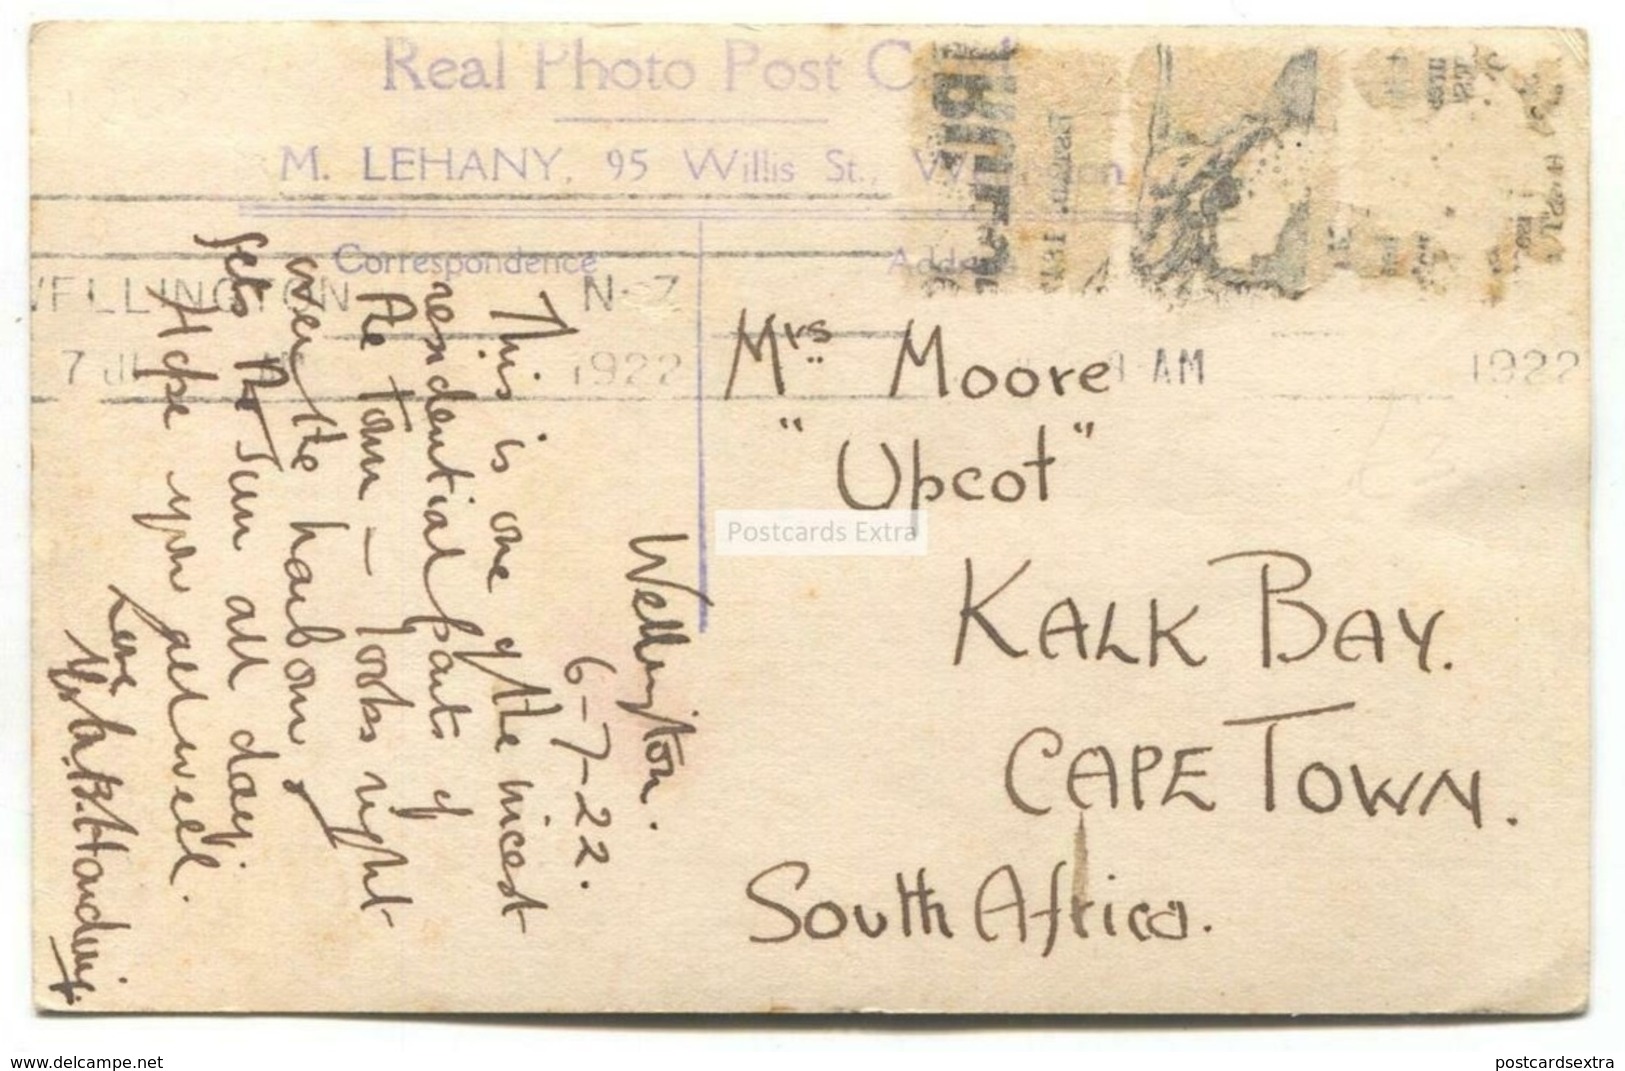 Real Photo Post C
M. LEHANY, 95 Willis St.,
Correspondence
WELLINGTON N.Z
7 JL 1922
AM 1922
Wellington.
6-7-22.
This is one of the nicest
residential parts of
the town — looks right
over the harbour &
gets the sun all day.
Hope you all well.
Love
Mrs Moore
"Upcot"
KALK BAY.
CAPE TOWN.
South Africa.
Postcards Extra
www.delcampe.net
postcardsextra